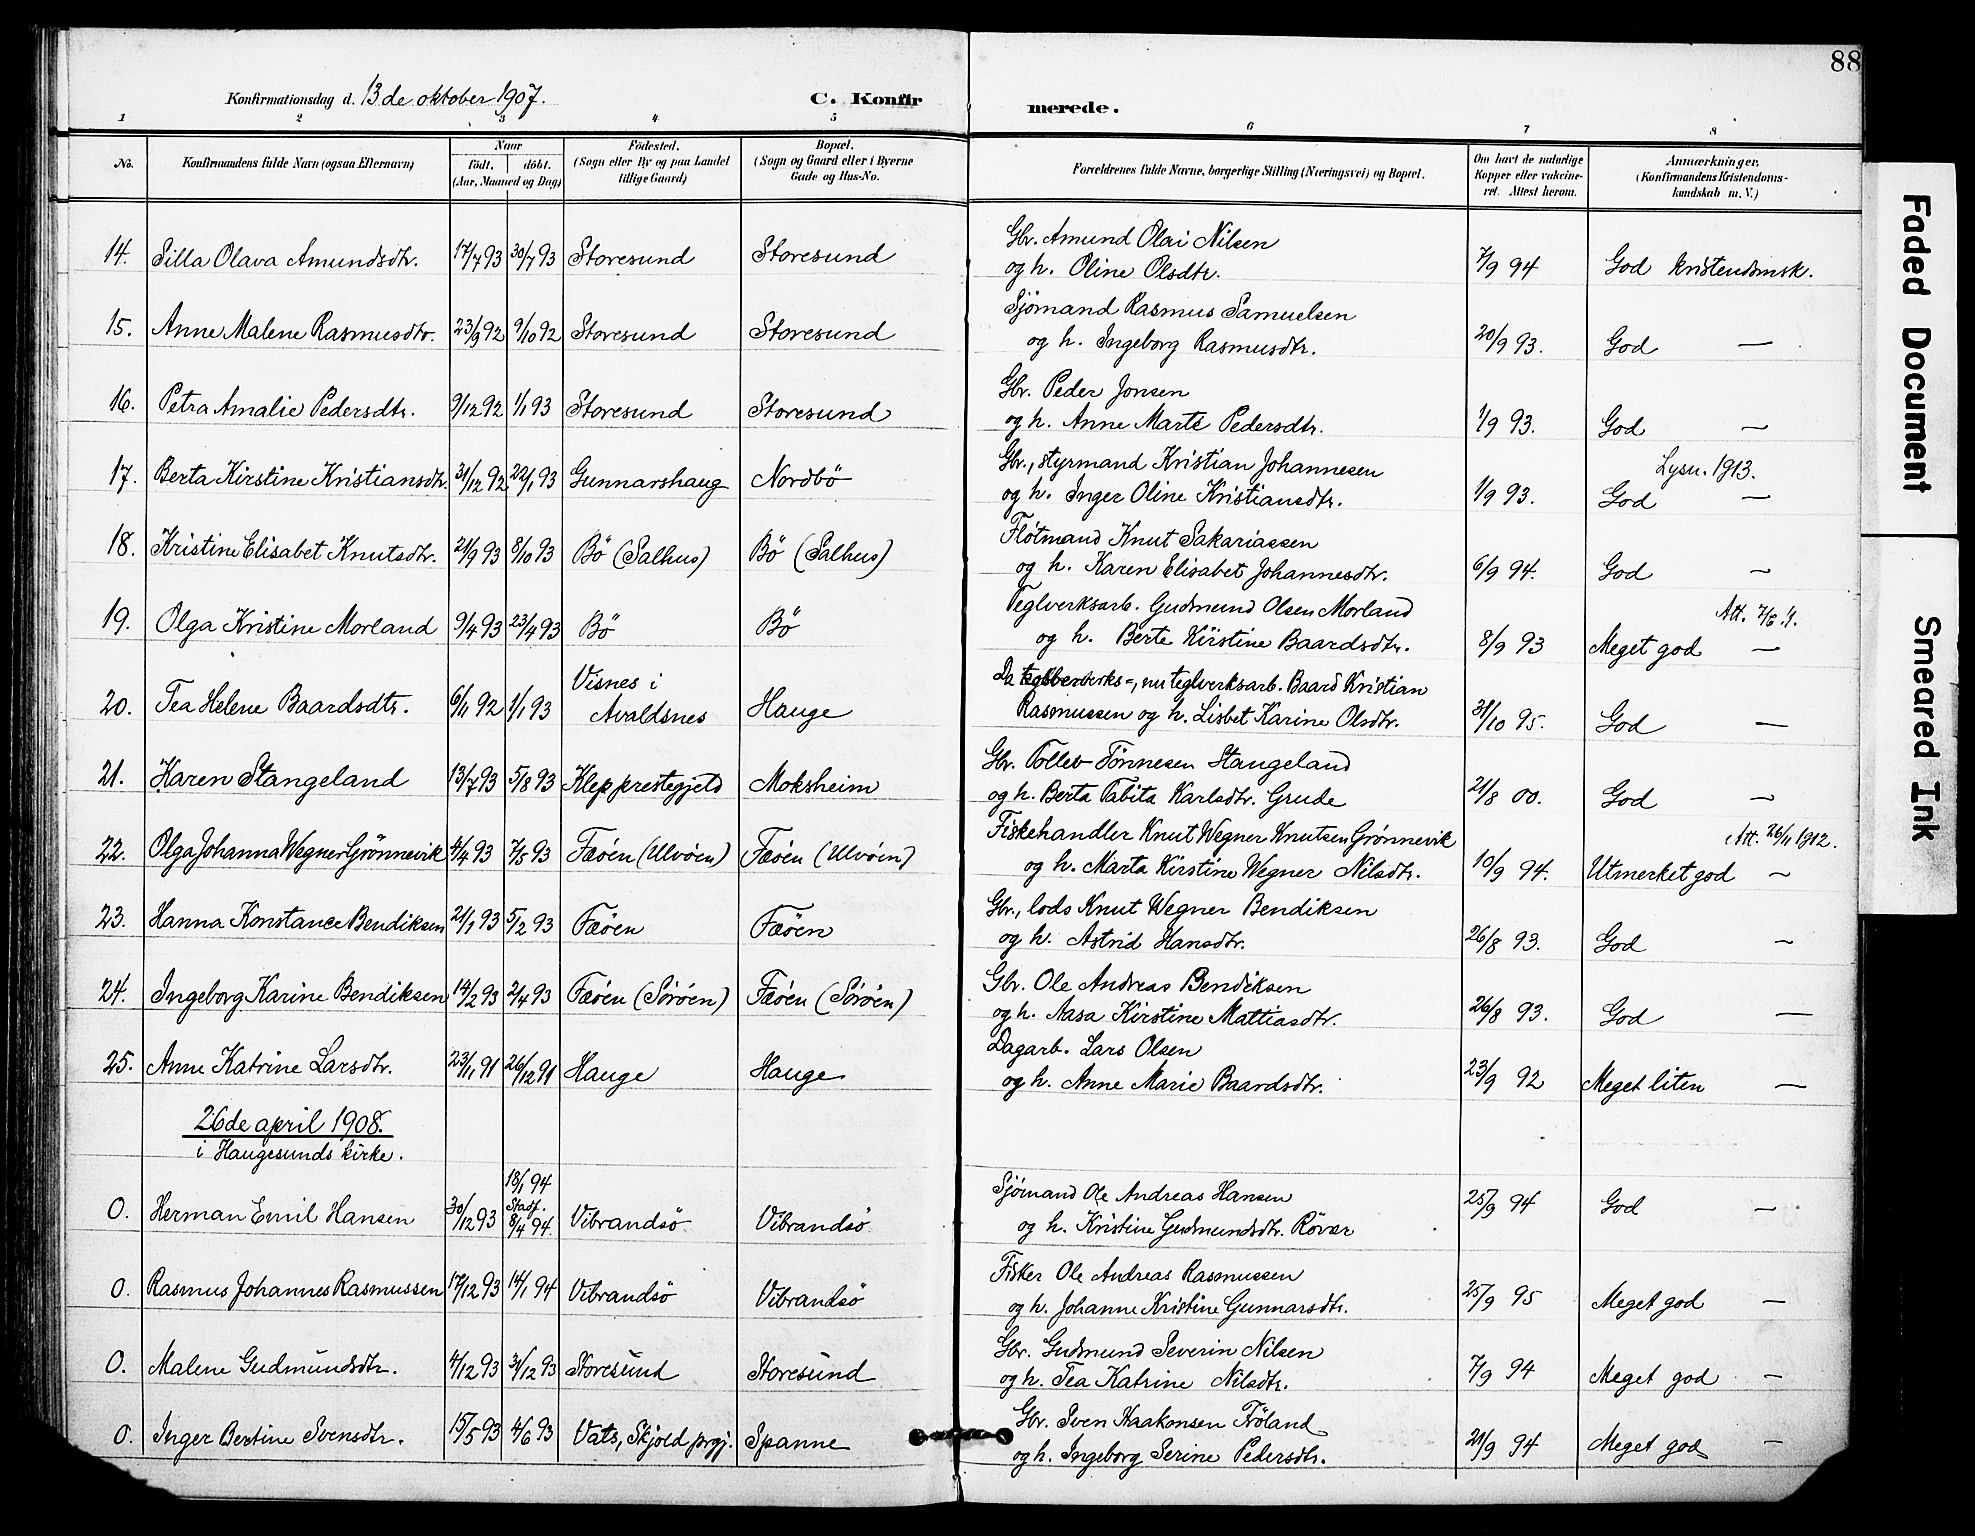 88
Konfirmationsdag d. 13de oktober 1907. C. Konfirmerede.
1 2 3 4 5 6 7 8
No. Konfirmandens fulde Navn (ogsaa Efternavn) Naar født. døbt. (Aar, Maaned og Dag) Fødested. (Sogn eller By og paa Landet tillige Gaard) Bopæl. (Sogn og Gaard eller i Byerne Gade og Hus-No.) Forældrenes fulde Navne, borgerlige Stilling (Næringsvei) og Bopæl. Om havt de naturlige Kopper eller vakcineret. Attest herom. Anmærkninger. (Konfirmandens Kristendomskundskab m. V.)
14. Silla Olava Amundsdtr. 17/7 93 30/7 93 Storesund Storesund Gbr. Amund Olai Nilsen
og h. Oline Olsdtr. 7/9 94 God kristendomsk.
15. Anne Malene Rasmusdtr. 23/9 92 9/10 92 Storesund Storesund Sjömand Rasmus Samuelsen
og h. Ingeborg Rasmusdtr. 20/9 93. God —
16. Petra Amalie Pedersdtr. 9/12 92 1/1 93 Storesund Storesund Gbr. Peder Jonsen
og h. Anne Marte Pedersdtr. 1/9 93. God —
17. Berta Kirstine Kristiansdtr. 31/12 92 22/1 93 Gunnarshaug Nordbö Gbr., styrmand Kristian Johannesen Lysn. 1913.
og h. Inger Oline Kristiansdtr. 1/9 93. God —
18. Kristine Elisabet Knutsdtr. 21/9 93 8/10 93 Bö (Salhus) Bö (Salhus) Fløtmand Knut Sakariassen
og h. Karen Elisabet Johannesdtr. 6/9 94. God —
19. Olga Kristine Morland 9/4 93 23/4 93 Bö Bö Teglverksarb. Gudmund Olsen Morland Att.
og h. Berte Kirstine Baardsdtr. 8/9 93 Meget god —
20. Tea Helene Baardsdtr. 6/11 92 1/1 93 Visnes i Avaldsnes Hauge Da kobberverks=, nu teglverksarb. Baard Kristian
Rasmussen og h. Lisbet Karine Olsdtr. 31/10 95. God —
21. Karen Stangeland 13/7 93 5/8 93 Klep prestegjeld Moksheim Gbr. Tollev Tönnesen Stangeland
og h. Berta Tabita Karlsdtr. Grude 21/8 00. God —
22. Olga Johanna Wegner Grönnevik 4/4 93 7/5 93 Fæöen (Ulvöen) Fæöen (Ulvöen) Fiskehandler Knut Wegner Knutsen Grönnevik Att. 26/11 1912.
og h. Marta Kirstine Wegner Nilsdtr. 10/9 94. Utmerket god —
23. Hanna Konstance Bendiksen 21/1 93 5/2 93 Fæöen Fæöen Gbr., lods Knut Wegner Bendiksen
og h. Astrid Hansdtr. 26/8 93. God —
24. Ingeborg Karine Bendiksen 14/2 93 2/4 93 Fæöen (Söröen) Fæöen (Söröen) Gbr. Ole Andreas Bendiksen
og h. Aasa Kirstine Mattiasdtr. 26/8 93. God —
25. Anne Katrine Larsdtr. 23/11 91 26/12 91 Hauge Hauge Dagarb. Lars Olsen
og h. Anne Marie Baardsdtr. 23/9 92 Meget liten —
26de april 1908.
i Haugesunds kirke.
0. Herman Emil Hansen 30/12 93 18/1 94 Stadf. 8/4 94. Vibrandsö Vibrandsö Sjömand Ole Andreas Hansen
og h. Kristine Gudmundsdtr. Rövær 25/9 94 God —
0. Rasmus Johannes Rasmussen 17/12 93 14/1 94 Vibrandsö Vibrandsö Fisker Ole Andreas Rasmussen
og h. Johanne Kristine Gunnarsdtr. 25/9 95 Meget god —
0. Malene Gudmundsdtr. 4/12 93 31/12 93 Storesund Storesund Gbr. Gudmund Severin Nilsen
og h. Tea Katrine Nilsdtr. 7/9 94 Meget god —
0. Inger Bertine Svensdtr. 15/5 93 4/6 93 Vats, Skjold prgj. Spanne Gbr. Sven Haakonsen Tröland
og h. Ingeborg Serine Pedersdtr. 21/9 94 Meget god —
Faded Document
Smeared Ink